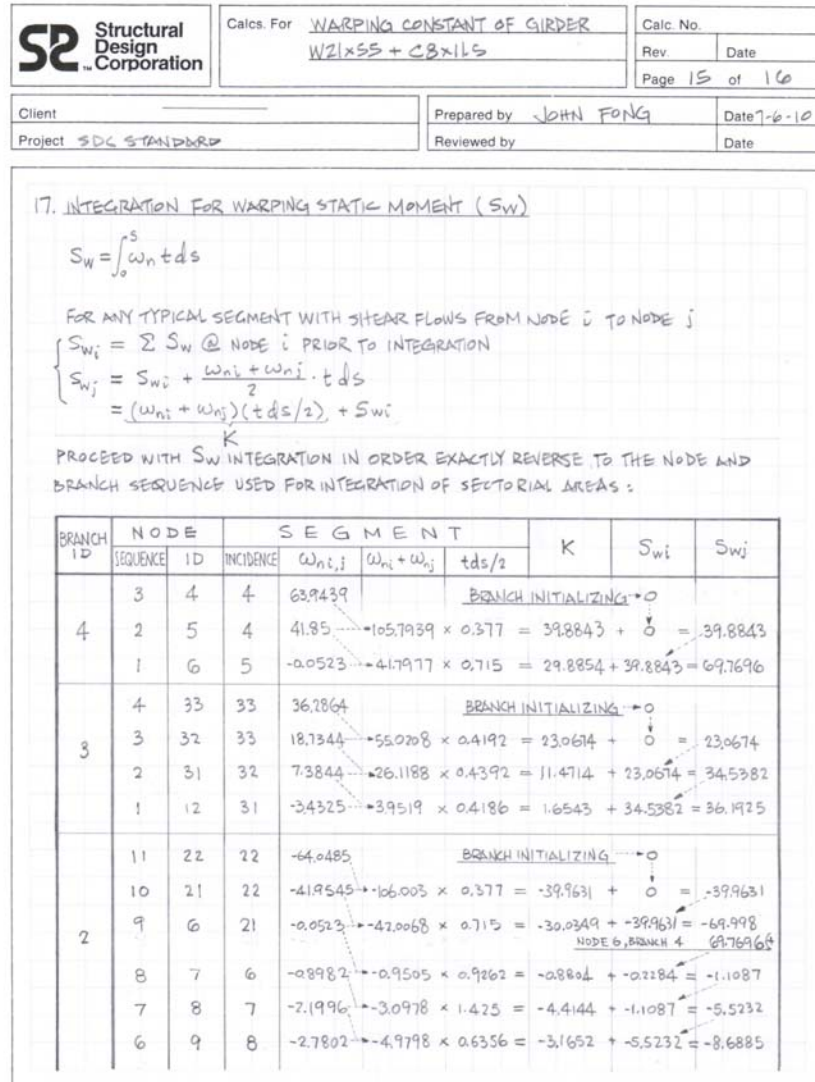 Structural
Design
Corporation
SD
TM
Calcs. For WARPING CONSTANT OF GIRDER
W21x55 + C8x11.5
Calc. No.
Rev. Date
Page 15 of 16
Client
Prepared by JOHN FONG Date 7-6-10
Project SDC STANDARD
Reviewed by Date
17. INTEGRATION FOR WARPING STATIC MOMENT (SW)
Sw = ∫₀ˢ ωn t ds
FOR ANY TYPICAL SEGMENT WITH SHEAR FLOWS FROM NODE i TO NODE j
Swi = Σ Sw @ NODE i PRIOR TO INTEGRATION
Swj = Swi + (ωni + ωnj)/2 · t ds
= (ωni + ωnj)(t ds/2) + Swi
K
PROCEED WITH SW INTEGRATION IN ORDER EXACTLY REVERSE TO THE NODE AND
BRANCH SEQUENCE USED FOR INTEGRATION OF SECTORIAL AREAS :
BRANCH ID NODE SEGMENT K Swi Swj
SEQUENCE ID INCIDENCE ωni,j ωni + ωnj tds/2
3 4 4 63.9439 BRANCH INITIALIZING 0
4 2 5 4 41.85 105.7939 x 0.377 = 39.8843 + 0 = 39.8843
1 6 5 -0.0523 41.7977 x 0.715 = 29.8854 + 39.8843 = 69.7696
4 33 33 36.2864 BRANCH INITIALIZING 0
3 3 32 33 18.7344 55.0208 x 0.4192 = 23.0674 + 0 = 23.0674
2 31 32 7.3844 26.1188 x 0.4392 = 11.4714 + 23.0674 = 34.5382
1 12 31 -3.4325 3.9519 x 0.4186 = 1.6543 + 34.5382 = 36.1925
11 22 22 -64.0485 BRANCH INITIALIZING 0
10 21 22 -41.9545 -106.003 x 0.377 = -39.9631 + 0 = -39.9631
2 9 6 21 -0.0523 -42.0068 x 0.715 = -30.0349 + -39.9631 = -69.998
NODE 6, BRANCH 4 69.7696
8 7 6 -0.8982 -0.9505 x 0.9262 = -0.8804 + -0.2284 = -1.1087
7 8 7 -2.1996 -3.0978 x 1.425 = -4.4144 + -1.1087 = -5.5232
6 9 8 -2.7802 -4.9798 x 0.6356 = -3.1652 + -5.5232 = -8.6885